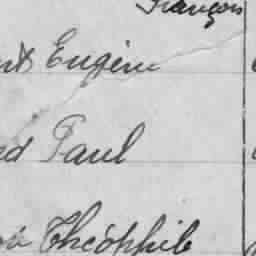 François
Eugène
Paul
Théophile